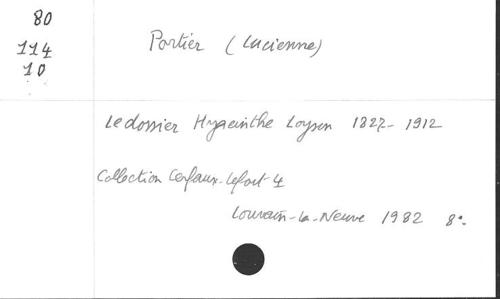 80
114
10
Portier (Lucienne)
Le dossier Hyacinthe Loyson 1827-1912
Collection Cerfaux-Lefort 4
Louvain-la-Neuve 1982 8°.